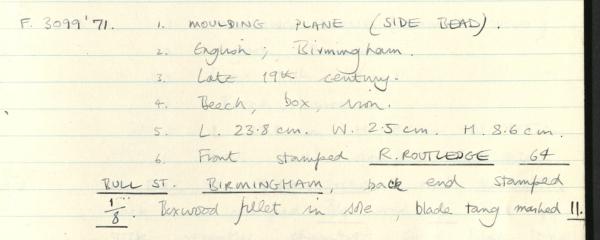 F. 3099'71. 1. MOULDING PLANE (SIDE BEAD).
2. English; Birmingham.
3. Late 19th century.
4. Beech, box, iron.
5. L. 23.8 cm. W. 2.5 cm. H. 8.6 cm.
6. Front stamped R. ROUTLEDGE 64
BULL ST. BIRMINGHAM, back end stamped
1/8. Boxwood fillet in sole, blade tang marked 11.